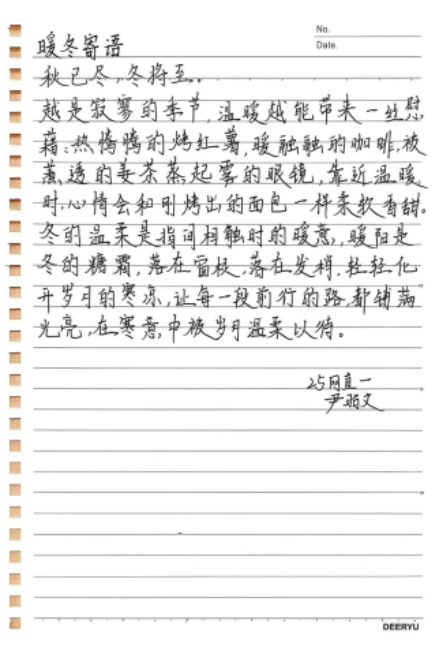 No.
Date.
暖冬寄语
秋已尽,冬将至。
越是寂寥的季节,温暖越能带来一丝慰
藉:热腾腾的烤红薯,暖融融的咖啡,被
蒸透的姜茶蒸起雾的眼镜,靠近温暖
时,心情会和刚烤出的面包一样柔软香甜。
冬的温柔是指间相触时的暖意,暖阳是
冬的糖霜,落在窗棂,落在发梢,轻轻化
开岁月的寒凉,让每一段前行的路,都铺满
光亮,在寒意中被岁月温柔以待。
25网直一
尹文
DEERYU